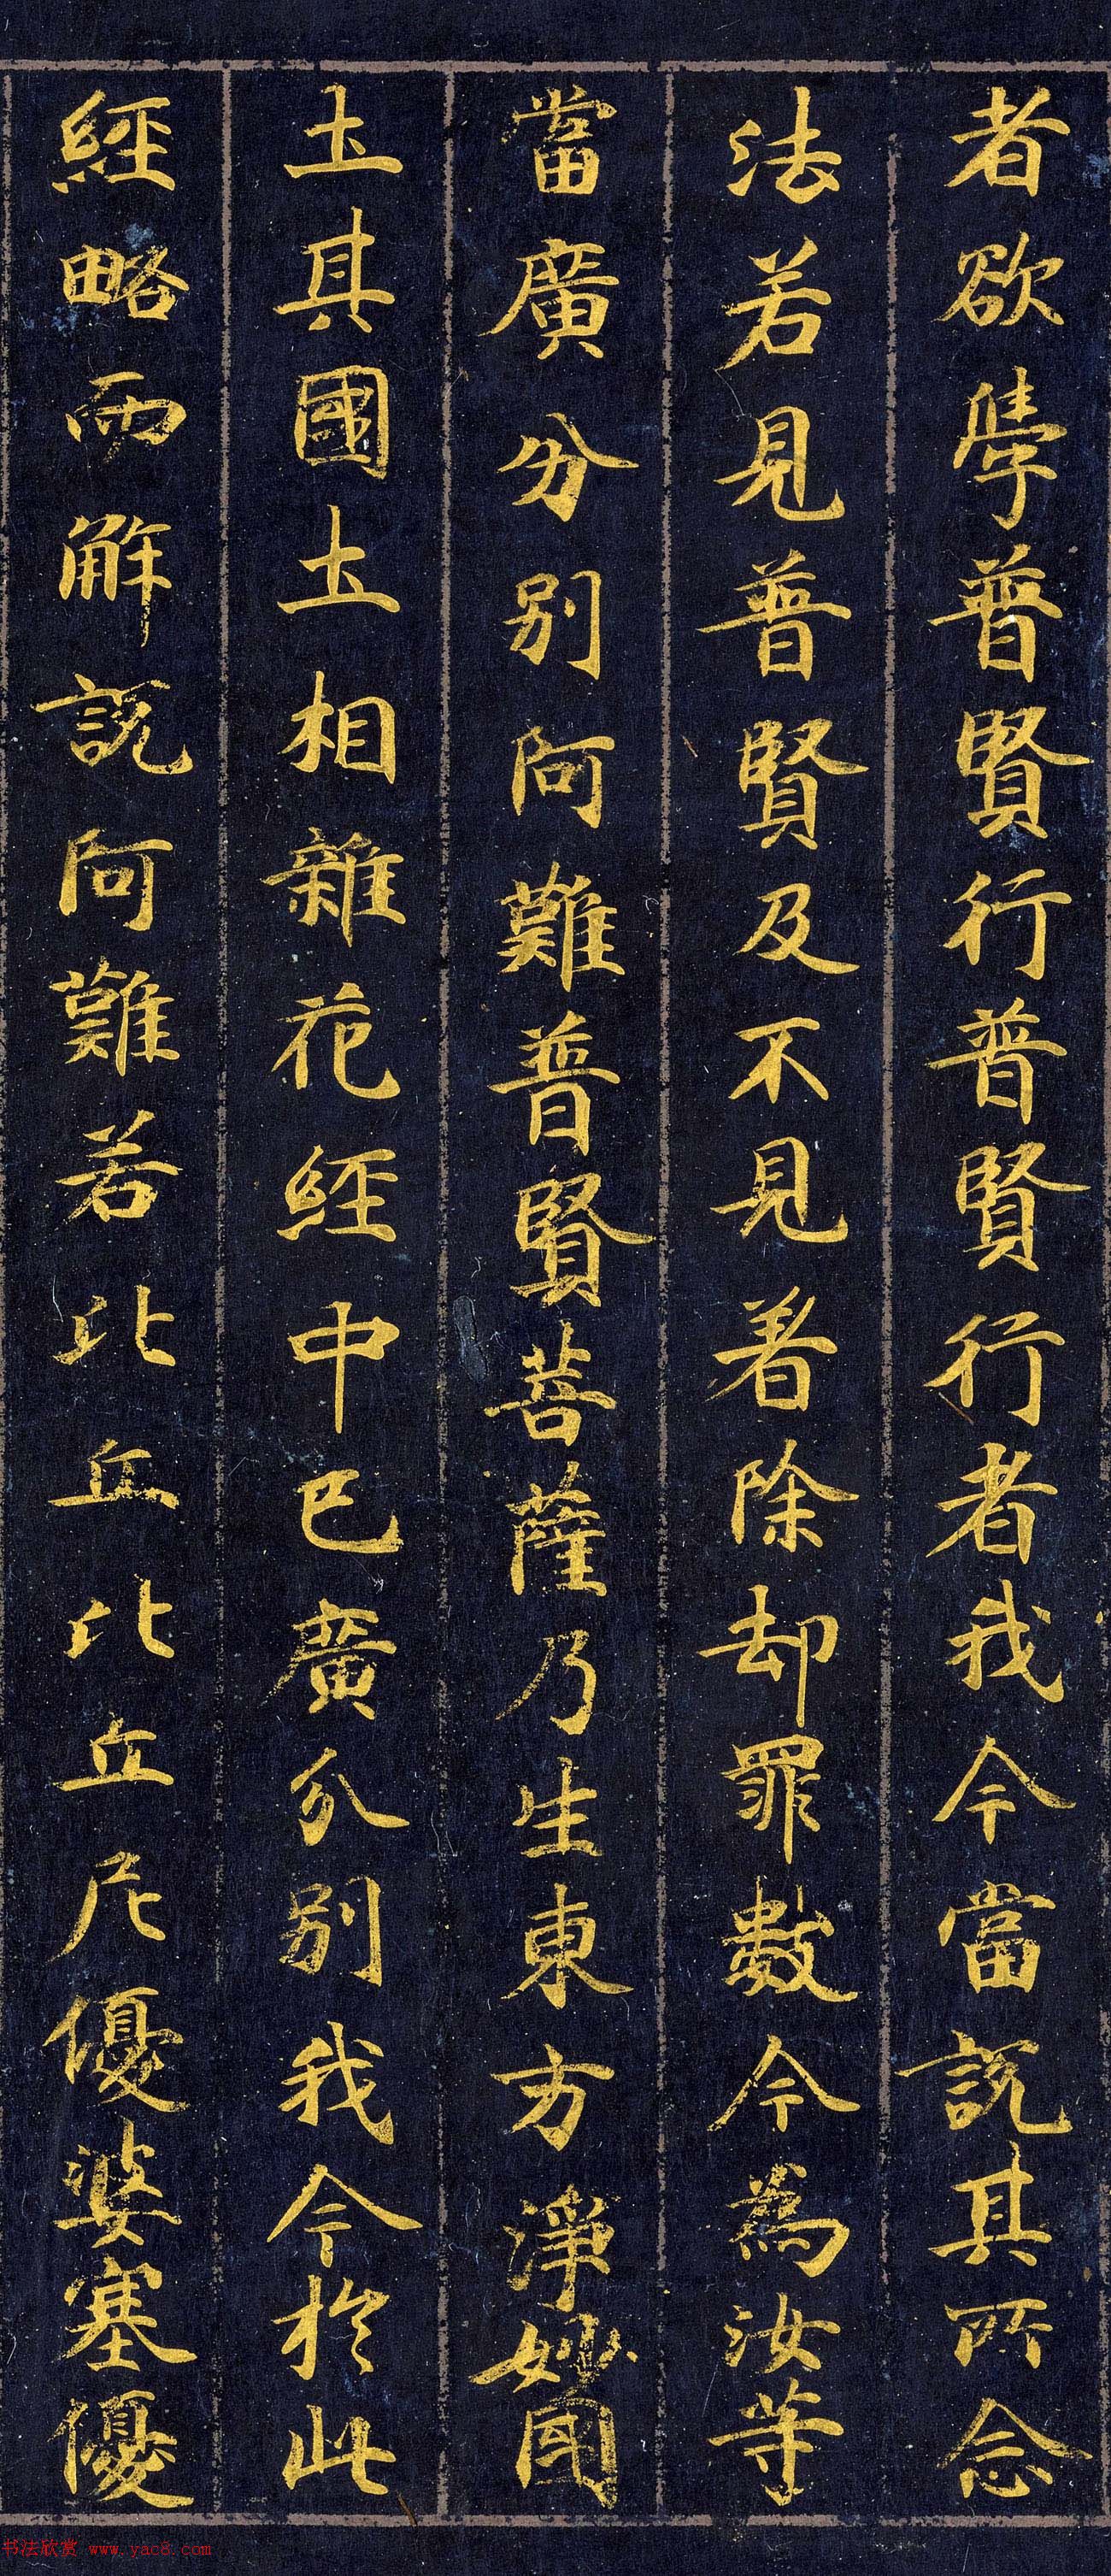 者欲學普賢行普賢行者我今當說其所念
法若見普賢及不見者除却罪數今為汝等
當廣分別阿難普賢菩薩乃生東方淨妙國
土其國土相雜花經中已廣分別我今於此
經略而解說阿難若比丘比丘尼優婆塞優
书法欣赏 www.yac8.com